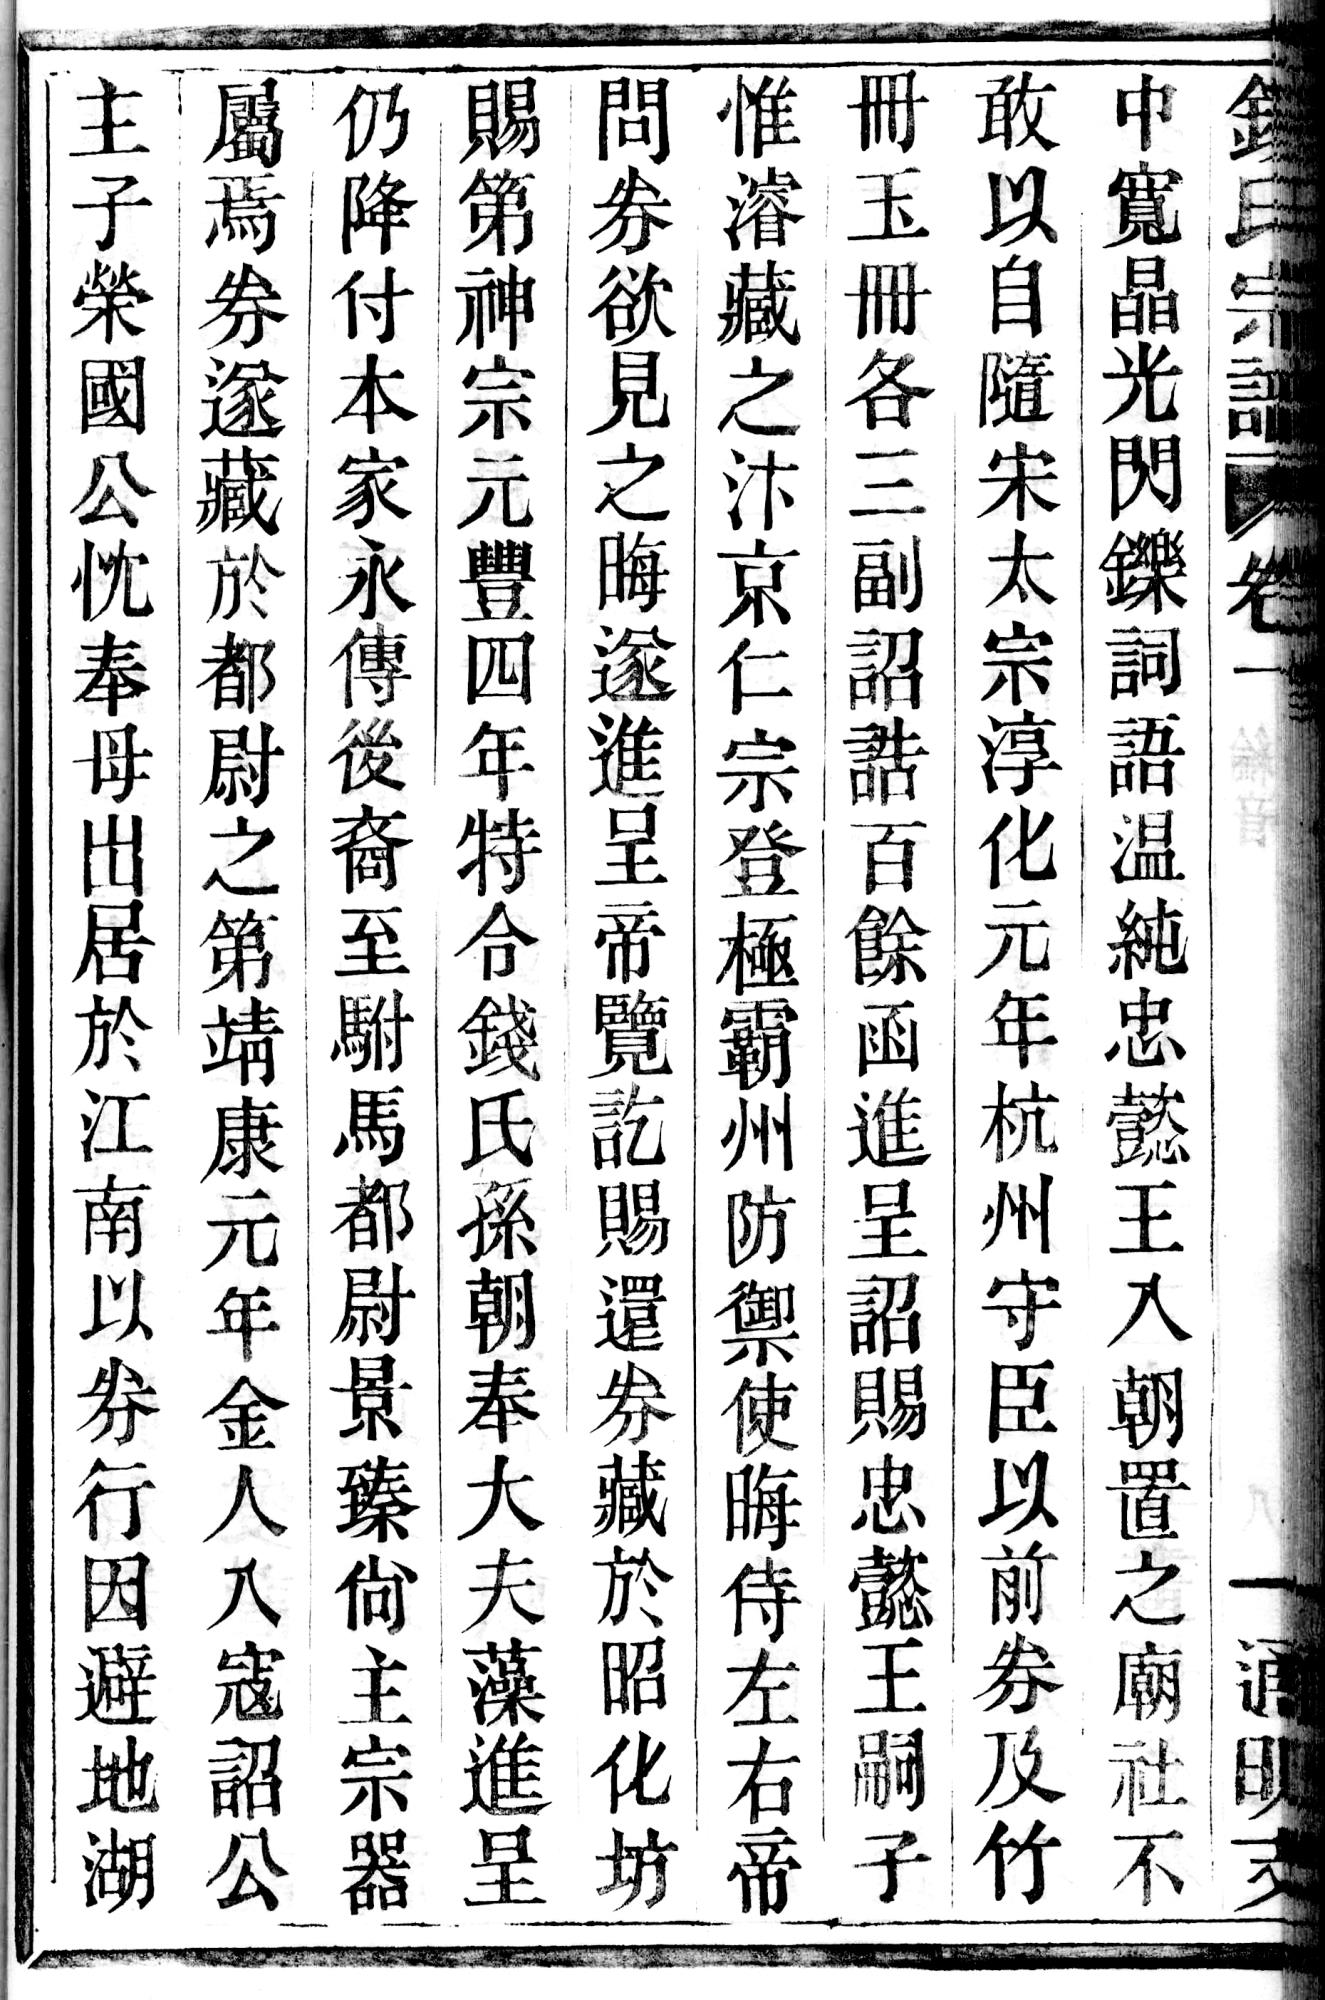 錢氏宗譜 卷一
中寬晶光閃鑠詞語温純忠懿王入朝置之廟社不
敢以自隨宋太宗淳化元年杭州守臣以前券及竹
冊玉冊各三副詔誥百餘函進呈詔賜忠懿王嗣子
惟濬藏之汴京仁宗登極霸州防禦使晦侍左右帝
問券欲見之晦遂進呈帝覽訖賜還券藏於昭化坊
賜第神宗元豐四年特令錢氏孫朝奉大夫藻進呈
仍降付本家永傳後裔至駙馬都尉景臻尙主宗器
屬焉券遂藏於都尉之第靖康元年金人入寇詔公
主子榮國公忱奉母出居於江南以券行因避地湖